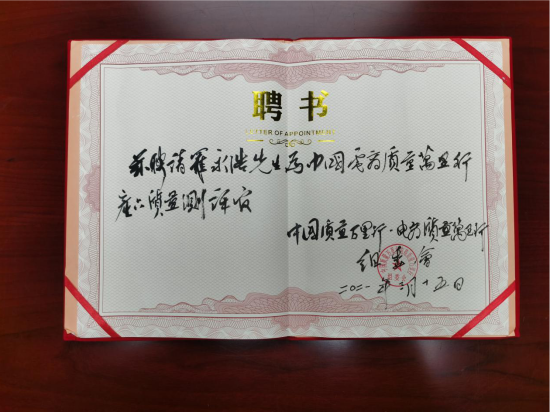 聘书
LETTER OF APPOINTMENT
兹聘请罗永浩先生为中国电商质量萬里行
产品质量测评官
中国质量万里行·电商质量萬里行
组委會
二〇二一年三月十五日